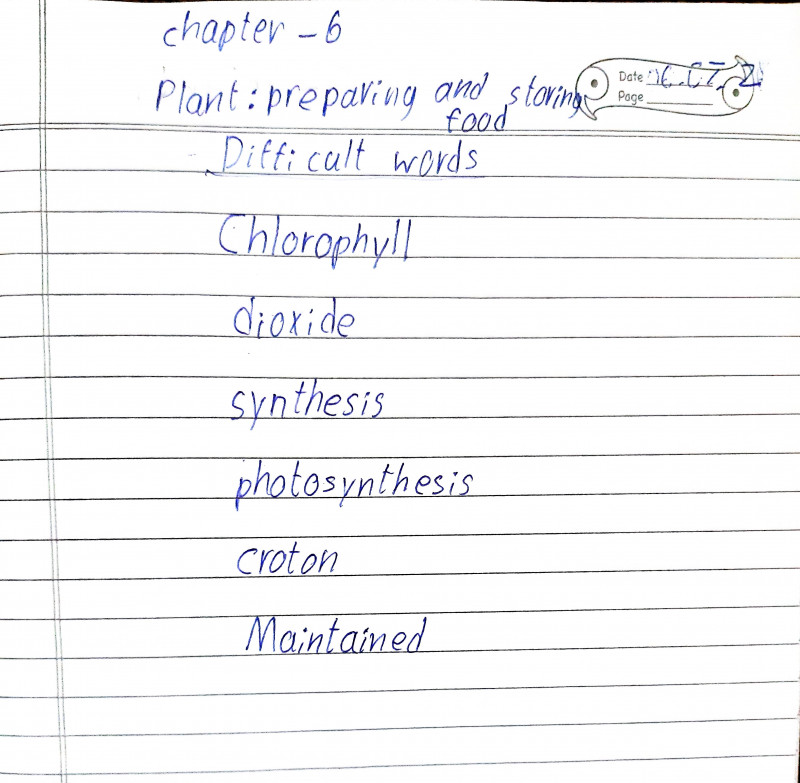 chapter - 6
Plant : preparing and storing
food
Date
Page
Difficult words
Chlorophyll
dioxide
synthesis
photosynthesis
croton
Maintained